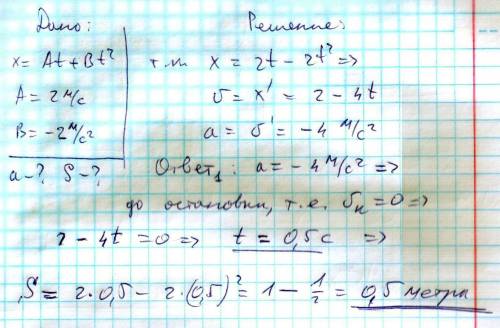 Дано:
Решение:
x = At + Bt²
A = 2 м/с
B = -2 м/с²
a - ? S - ?
т.к. x = 2t - 2t² =>
v = x' = 2 - 4t
a = v' = -4 м/с²
Ответ₁: a = -4 м/с² =>
до остановки, т.е. vк = 0 =>
2 - 4t = 0 => t = 0,5 с =>
S = 2·0,5 - 2·(0,5)² = 1 - 1/2 = 0,5 метра